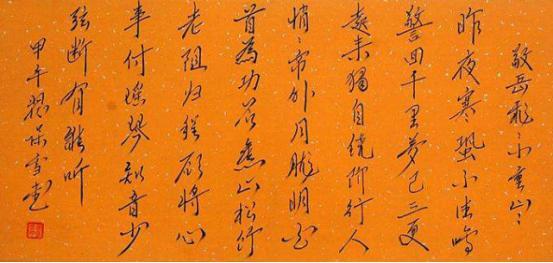 敬岳飛小重山
昨夜寒蛩不住鳴
驚回千里夢已三更
起来獨自繞阶行人
悄〻帘外月朧明白
首為功名舊山松竹
老阻归程欲将心
事付瑶琴知音少
弦断有誰听
甲午